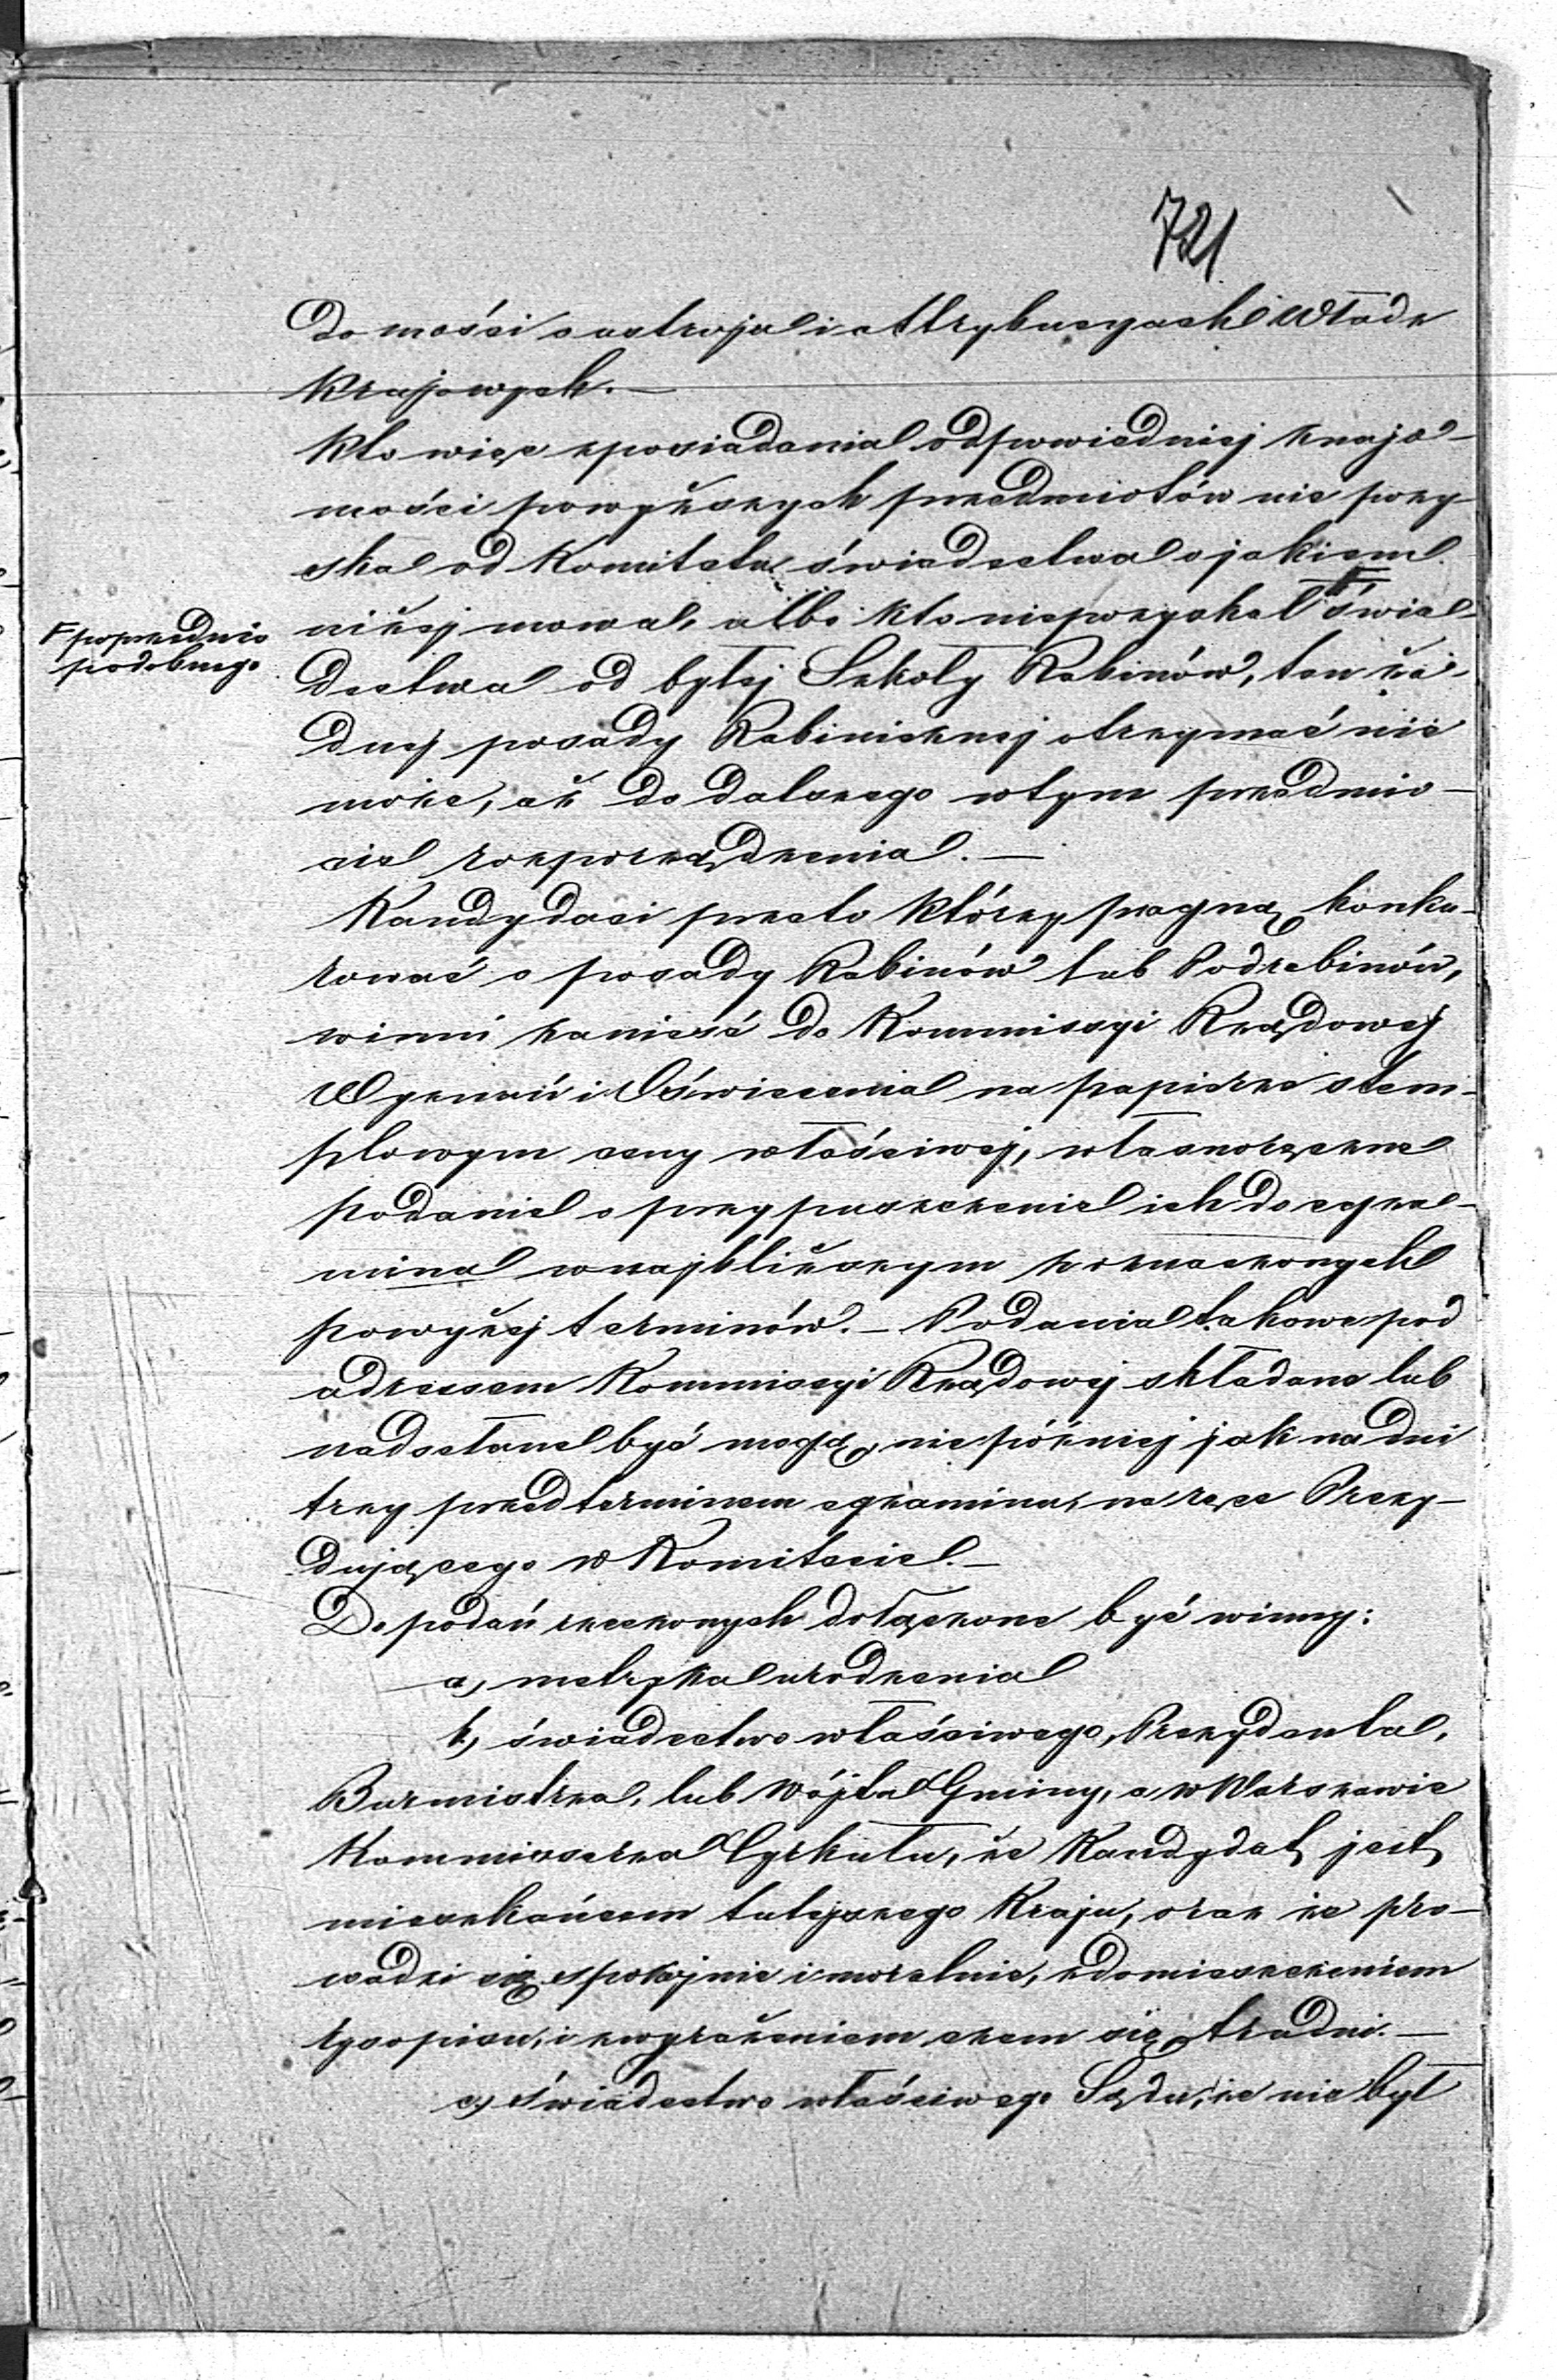 721
domości o ustroju i attrybucyach Władz
Krajowych. —
Kto więc zposiadania odpowiedniej znajo-
mości powyższych przedmiotów nie pozy-
ska od Komitetu świadectwa o jakiem
niżej mowa, albo kto niepozyskał F świa-
F poprzednio
podobnego
dectwa od byłej Szkoły Rabinów, ten ża-
dnej posady Rabinicznej otrzymać nie
może, aż do dalszego wtym przedmio-
cie rozporządzenia. —
Kandydaci przeto którzy pragną konku-
rować o posady Rabinów lub Podrabinów,
winni zanieść do Kommissyi Rządowej
Wyznań i Oświecenia na papierze stem-
plowym ceny właściwej, własnoręczne
podanie o przypuszczenie ich do egza-
mina wnajbliższym z oznaczonych
powyżej terminów. — Podania takowe pod
adressem Kommissyi Rządowej składane lub
nadsełane być mogą, nie później jak na dni
trzy przed terminem egzaminu, na ręce Prezy-
dującego w Komitecie. —
Do podań rzeczonych dołączone być winny:
a, metryka urodzenia
b, świadectwo właściwego, Prezydenta,
Burmistrza, lub Wójta Gminy, a w Warszawie
Kommissarza Cyrkułu, że Kandydat jest
mieszkańcem tutejszego Kraju, oraz że pro-
wadzi się spokojnie i moralnie, zdomieszczeniem
rysopisu, i zwyrażeniem czem się trudni. —
c, świadectwo właściwego Sądu, że nie był